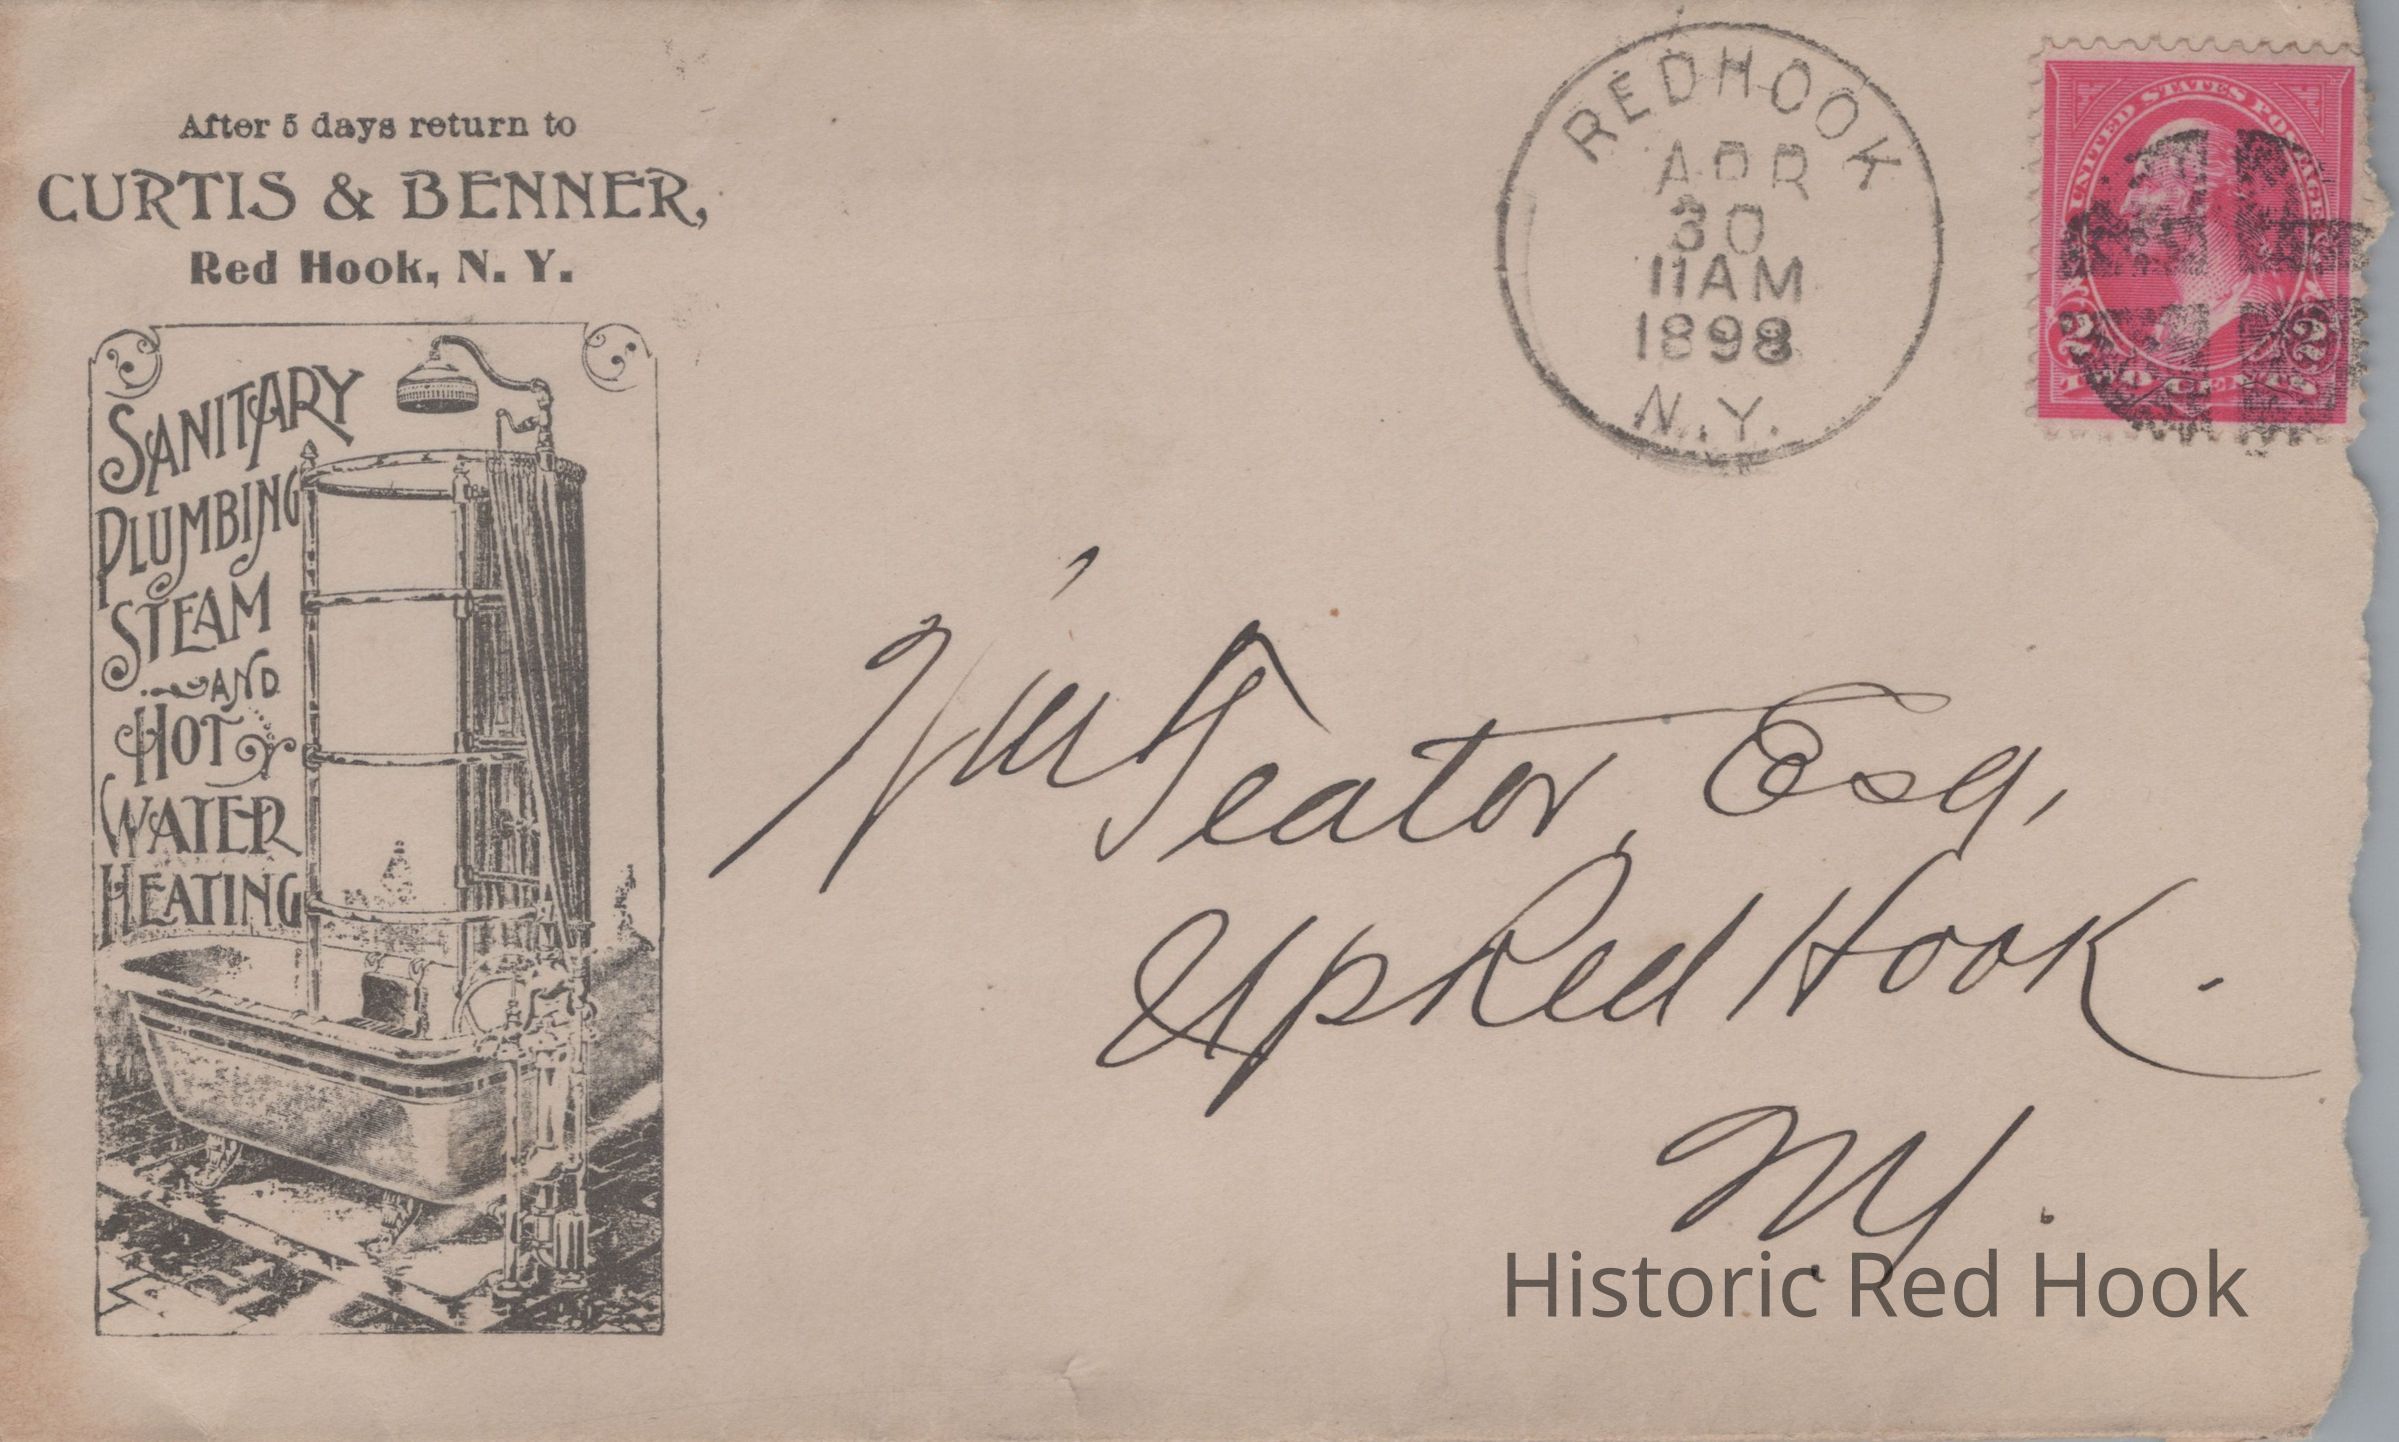 After 5 days return to
CURTIS & BENNER,
Red Hook, N. Y.
SANITARY
PLUMBING
STEAM
AND
HOT
WATER
HEATING
REDHOOK
APR
30
11AM
1898
N.Y.
UNITED STATES POSTAGE
2 2
TWO CENTS
Teator, Esq,
Up Red Hook.
NY.
Historic Red Hook